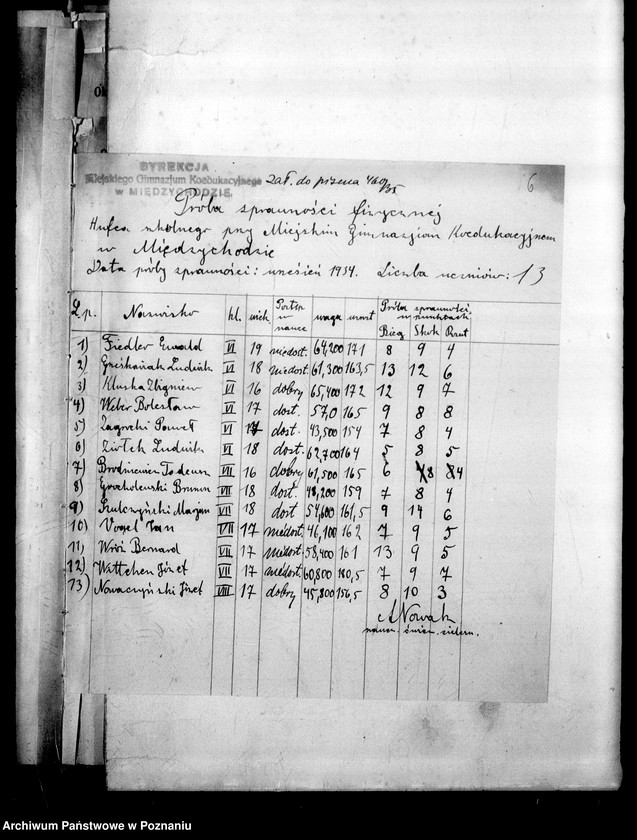 DYREKCJA
Miejskiego Gimnazjum Koedukacyjnego
w MIĘDZYCHODZIE
Zał. do pisma 460/35
6
Próba sprawności fizycznej
Hufca szkolnego przy Miejskim Gimnazjum Koedukacyjnem
w Międzychodzie
Data próby sprawności: wrzesień 1934. Liczba uczniów: 13
L.p. Nazwisko kl. wiek Postęp w nauce waga wzrost Próba sprawności w punktach
Bieg Skok Rzut
1) Fiedler Ewald VI 19 niedost. 64,200 171 8 9 4
2) Ludwik VI 18 niedost. 61,300 163,5 13 12 6
3) Kluska Zbigniew VI 16 dobry 65,400 172 12 9 7
4) Weber Bolesław VI 17 dost. 57,0 165 9 8 8
5) Zagrocki Paweł VI 17 dost. 43,500 154 7 8 4
6) Ziołek Ludwik VI 18 dost. 62,700 164 5 8 5
7) Brodniewicz Tadeusz VII 16 dobry 61,500 165 6 8 4
8) Grocholewski Brunon VII 18 dost. 48,200 159 7 8 4
9) Szulczyński Marjan VII 18 dost 54,600 161,5 9 14 6
10) Vogel Jan VII 17 niedost. 46,100 162 7 9 5
11) Bernard VII 17 niedost. 58,400 161 13 9 5
12) Wittchen Józef VII 17 niedost. 60,800 180,5 7 9 7
13) Nowaczyński Józef VIII 17 dobry 45,800 156,5 8 10 3
A Nowak
naucz. ćwicz. cielesn.
Archiwum Państwowe w Poznaniu